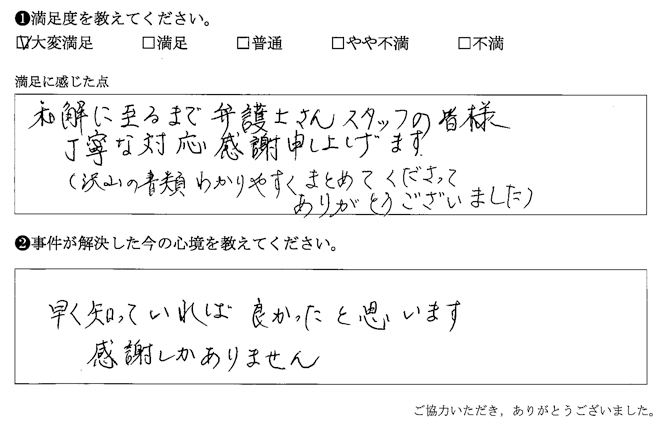 ❶満足度を教えてください。
☑大変満足 □満足 □普通 □やや不満 □不満
満足に感じた点
和解に至るまで 弁護士さん スタッフの 皆様
丁寧な対応 感謝申し上げます
(沢山の書類 わかりやすく まとめてくださって
ありがとうございました)
❷事件が解決した今の心境を教えてください。
早く知っていれば 良かったと思います
感謝しかありません
ご協力いただき，ありがとうございました。